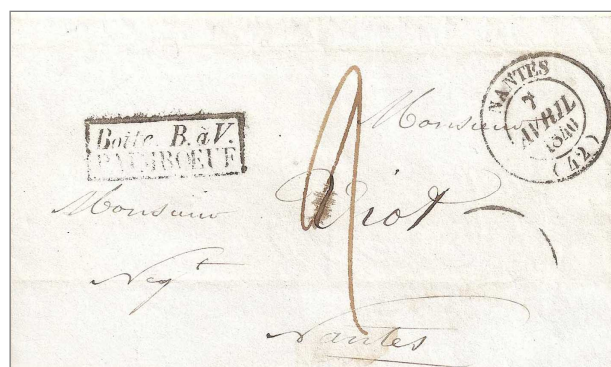 Boite B. à V.
PAIMBOEUF
NANTES
7
AVRIL
1840
(42)
Monsieur
Monsieur
Viot
Negt
Nantes